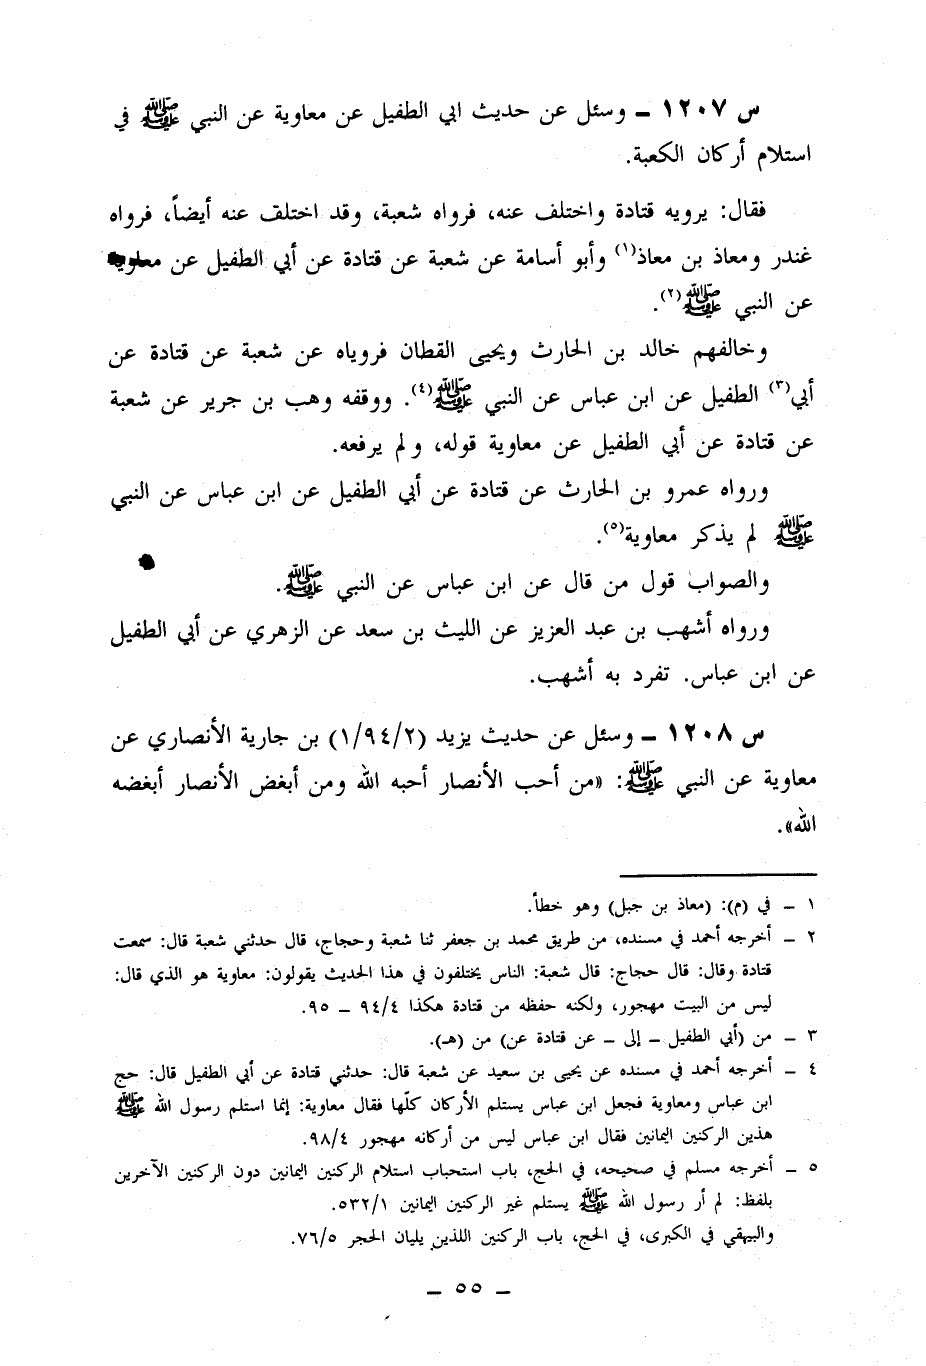 س ١٢٠٧ ـ وسئل عن حديث ابي الطفيل عن معاوية عن النبي ﷺ في
استلام أركان الكعبة.
فقال: يرويه قتادة واختلف عنه، فرواه شعبة، وقد اختلف عنه أيضاً، فرواه
غندر ومعاذ بن معاذ(١) وأبو أسامة عن شعبة عن قتادة عن أبي الطفيل عن معاوية
عن النبي ﷺ(٢).
وخالفهم خالد بن الحارث ويحيى القطان فروياه عن شعبة عن قتادة عن
أبي(٣) الطفيل عن ابن عباس عن النبي ﷺ(٤). ووقفه وهب بن جرير عن شعبة
عن قتادة عن أبي الطفيل عن معاوية قوله، ولم يرفعه.
ورواه عمرو بن الحارث عن قتادة عن أبي الطفيل عن ابن عباس عن النبي
ﷺ لم يذكر معاوية(٥).
والصواب قول من قال عن ابن عباس عن النبي ﷺ.
ورواه أشهب بن عبد العزيز عن الليث بن سعد عن الزهري عن أبي الطفيل
عن ابن عباس. تفرد به أشهب.
س ١٢٠٨ ـ وسئل عن حديث يزيد (١/٩٤/٢) بن جارية الأنصاري عن
معاوية عن النبي ﷺ: «من أحب الأنصار أحبه الله ومن أبغض الأنصار أبغضه
الله».
١ ـ في (م): (معاذ بن جبل) وهو خطأ.
٢ ـ أخرجه أحمد في مسنده، من طريق محمد بن جعفر ثنا شعبة وحجاج، قال حدثني شعبة قال: سمعت
قتادة وقال: قال حجاج: قال شعبة: الناس يختلفون في هذا الحديث يقولون: معاوية هو الذي قال:
ليس من البيت مهجور، ولكنه حفظه من قتادة هكذا ٩٤/٤ ـ ٩٥.
٣ ـ من (أبي الطفيل ـ إلى ـ عن قتادة عن) من (هـ).
٤ ـ أخرجه أحمد في مسنده عن يحيى بن سعيد عن شعبة قال: حدثني قتادة عن أبي الطفيل قال: حج
ابن عباس ومعاوية فجعل ابن عباس يستلم الأركان كلّها فقال معاوية: إنما استلم رسول الله ﷺ
هذين الركنين اليمانين فقال ابن عباس ليس من أركانه مهجور ٩٨/٤.
٥ ـ أخرجه مسلم في صحيحه، في الحج، باب استحباب استلام الركنين اليمانين دون الركنين الآخرين
بلفظ: لم أر رسول الله ﷺ يستلم غير الركنين اليمانين ٥٣٢/١.
والبيهقي في الكبرى، في الحج، باب الركنين اللذين يليان الحجر ٧٦/٥.
ـ ٥٥ ـ